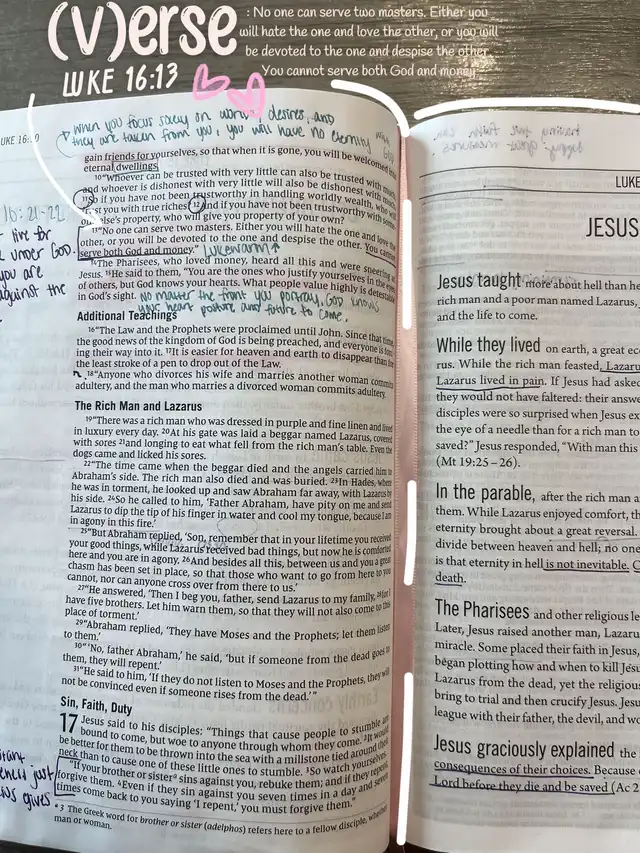 (v)erse
LUKE 16:13
: No one can serve two masters. Either you
will hate the one and love the other, or you will
be devoted to the one and despise the other.
You cannot serve both God and money
when you focus solely on world desires, and
they are taken from you, you will have no eternity
gain friends for yourselves, so that when it is gone, you will be welcomed into
eternal dwellings.
10 "Whoever can be trusted with very little can also be trusted with much,
and whoever is dishonest with very little will also be dishonest with much.
11 So if you have not been trustworthy in handling worldly wealth, who will
trust you with true riches? 12 And if you have not been trustworthy with some-
one else's property, who will give you property of your own?
13 "No one can serve two masters. Either you will hate the one and love the
other, or you will be devoted to the one and despise the other. You cannot
serve both God and money." Lukewarm
14 The Pharisees, who loved money, heard all this and were sneering at
Jesus. 15 He said to them, "You are the ones who justify yourselves in the eyes
of others, but God knows your hearts. What people value highly is detestable
in God's sight. No matter the front you portray, God knows
your heart posture and future to come.
Additional Teachings
16 "The Law and the Prophets were proclaimed until John. Since that time,
the good news of the kingdom of God is being preached, and everyone is forc-
ing their way into it. 17 It is easier for heaven and earth to disappear than for
the least stroke of a pen to drop out of the Law.
18 "Anyone who divorces his wife and marries another woman commits
adultery, and the man who marries a divorced woman commits adultery.
The Rich Man and Lazarus
19 "There was a rich man who was dressed in purple and fine linen and lived
in luxury every day. 20 At his gate was laid a beggar named Lazarus, covered
with sores 21 and longing to eat what fell from the rich man's table. Even the
dogs came and licked his sores.
22 "The time came when the beggar died and the angels carried him to
Abraham's side. The rich man also died and was buried. 23 In Hades, where
he was in torment, he looked up and saw Abraham far away, with Lazarus by
his side. 24 So he called to him, 'Father Abraham, have pity on me and send
Lazarus to dip the tip of his finger in water and cool my tongue, because I am
in agony in this fire.'
25 "But Abraham replied, 'Son, remember that in your lifetime you received
your good things, while Lazarus received bad things, but now he is comforted
here and you are in agony. 26 And besides all this, between us and you a great
chasm has been set in place, so that those who want to go from here to you
cannot, nor can anyone cross over from there to us.'
27 "He answered, 'Then I beg you, father, send Lazarus to my family, 28 for I
have five brothers. Let him warn them, so that they will not also come to this
place of torment.'
29 "Abraham replied, 'They have Moses and the Prophets; let them listen
to them.'
30 "'No, father Abraham,' he said, 'but if someone from the dead goes to
them, they will repent.'
31 "He said to him, 'If they do not listen to Moses and the Prophets, they will
not be convinced even if someone rises from the dead.'"
Sin, Faith, Duty
17 Jesus said to his disciples: "Things that cause people to stumble are
bound to come, but woe to anyone through whom they come. 2 It would
be better for them to be thrown into the sea with a millstone tied around their
neck than to cause one of these little ones to stumble. 3 So watch yourselves.
"If your brother or sister a sins against you, rebuke them; and if they repent,
forgive them. 4 Even if they sin against you seven times in a day and seven
times come back to you saying 'I repent,' you must forgive them."
a 3 The Greek word for brother or sister (adelphos) refers to a fellow disciple, whether
man or woman.
16:21-22
live for
under God.
you are
against the
just
gives
LUKE
JESUS
Jesus taught more about hell than he
rich man and a poor man named Lazarus,
and the life to come.
While they lived on earth, a great
rus. While the rich man feasted, Lazaru
Lazarus lived in pain. If Jesus had asked
they would not have faltered: their answe
disciples were so surprised when Jesus ex
the eye of a needle than for a rich man to
saved?" Jesus responded, "With man this
(Mt 19:25–26).
In the parable, after the rich man a
them. While Lazarus enjoyed comfort, th
eternity brought about a great reversal.
divide between heaven and hell; no one
is that eternity in hell is not inevitable.
death.
The Pharisees and other religious le
Later, Jesus raised another man, Lazaru
miracle. Some placed their faith in Jesus,
began plotting how and when to kill Jesu
Lazarus from the dead, yet the religious
bring to trial and then crucify Jesus. Jesu
league with their father, the devil, and wo
Jesus graciously explained the
consequences of their choices. Because
Lord before they die and be saved (Ac 2